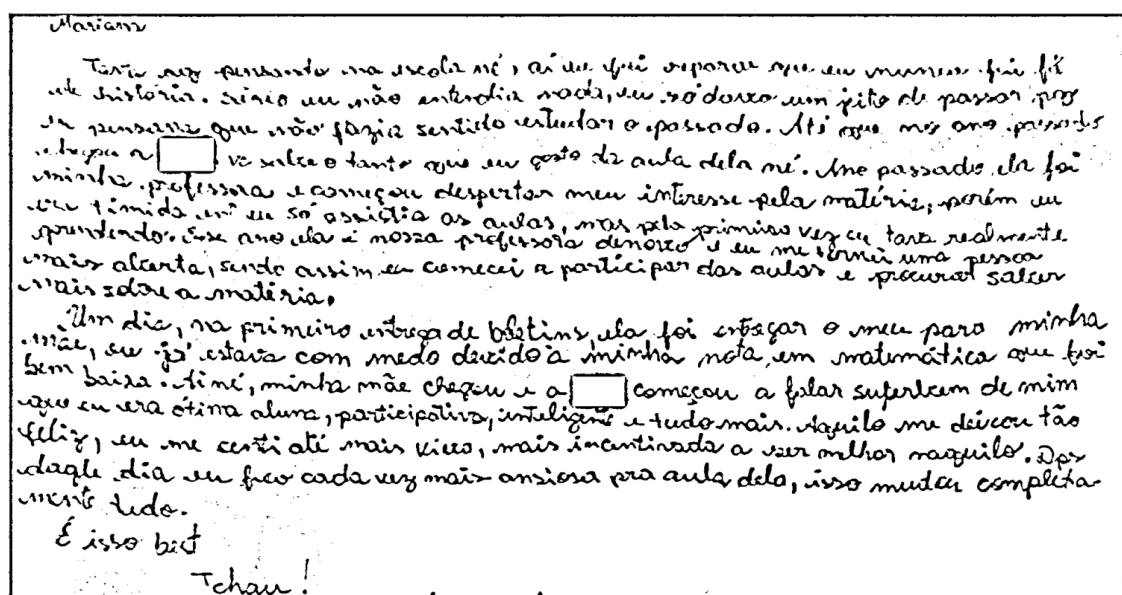 Mariana
Tava aqui pensando na escola né, aí eu fui reparar que eu nunca fui fã
de história. Sério eu não entendia nada, eu só dava um jeito de passar pq
eu pensava que não fazia sentido estudar o passado. Até que no ano passado
chegou a vc sabe o tanto que eu gosto da aula dela né. Ano passado ela foi
minha professora e começou despertar meu interesse pela matéria, porém eu
era tímida então eu só assistia as aulas, mas pela primeira vez eu tava realmente
aprendendo. Esse ano ela é nossa professora denovo e eu me tornei uma pessoa
mais aberta, sendo assim eu comecei a participar das aulas e procurar saber
mais sobre a matéria.
Um dia, na primeira entrega de boletins, ela foi entregar o meu para minha
mãe, eu já estava com medo devido à minha nota em matemática que foi
bem baixa. Ai né, minha mãe chegou e a começou a falar superbem de mim
que eu era ótima aluna, participativa, inteligente e tudo mais. Aquilo me deixou tão
feliz, eu me senti até mais viva, mais incentivada a ser melhor naquilo. Dps
daqle dia eu fico cada vez mais ansiosa pra aula dela, isso mudou completa-
mente tudo.
É isso
Tchau!